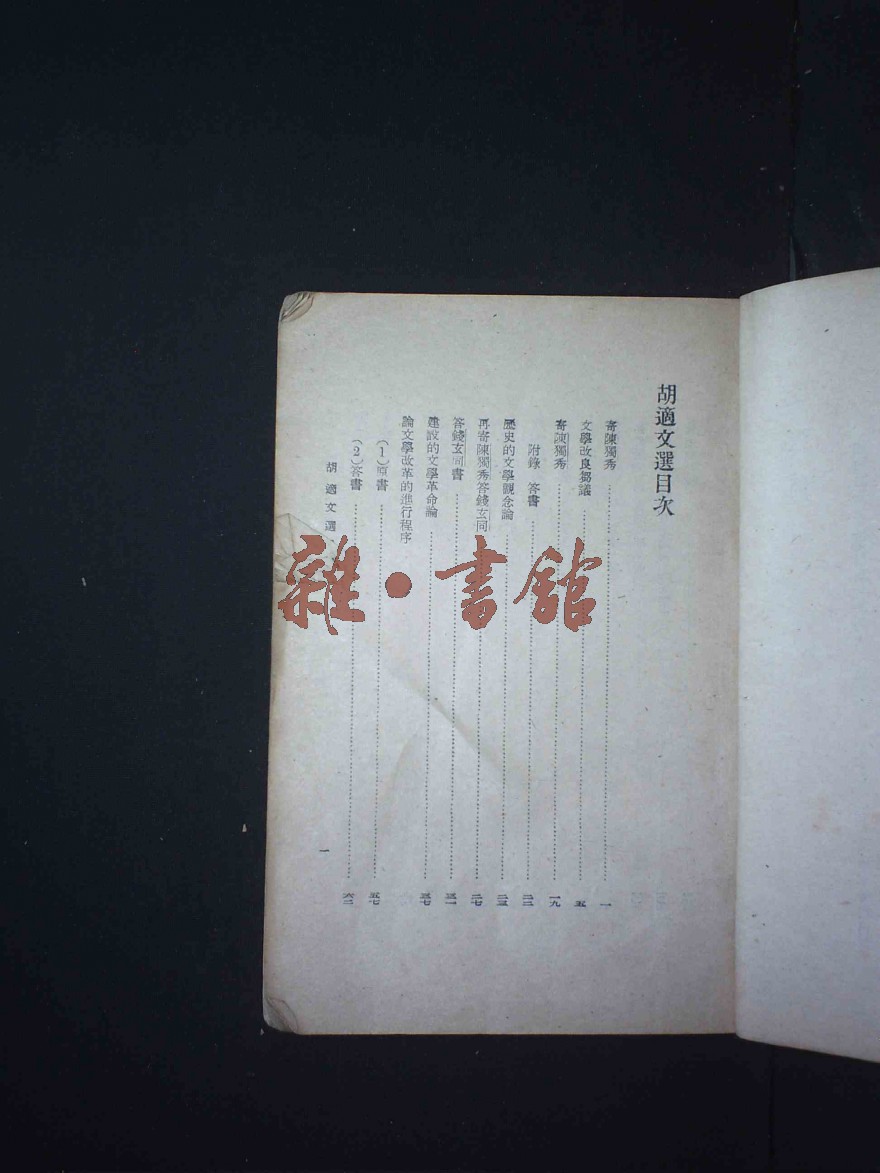 胡適文選目次
寄陳獨秀……一
文學改良芻議……五
寄陳獨秀……一九
附錄 答書……二二
歷史的文學觀念論……二三
再寄陳獨秀答錢玄同……二七
答錢玄同書……三一
建設的文學革命論……三七
論文學改革的進行程序
(1)原書……五七
(2)答書……六二
胡適文選
一
雜·書館